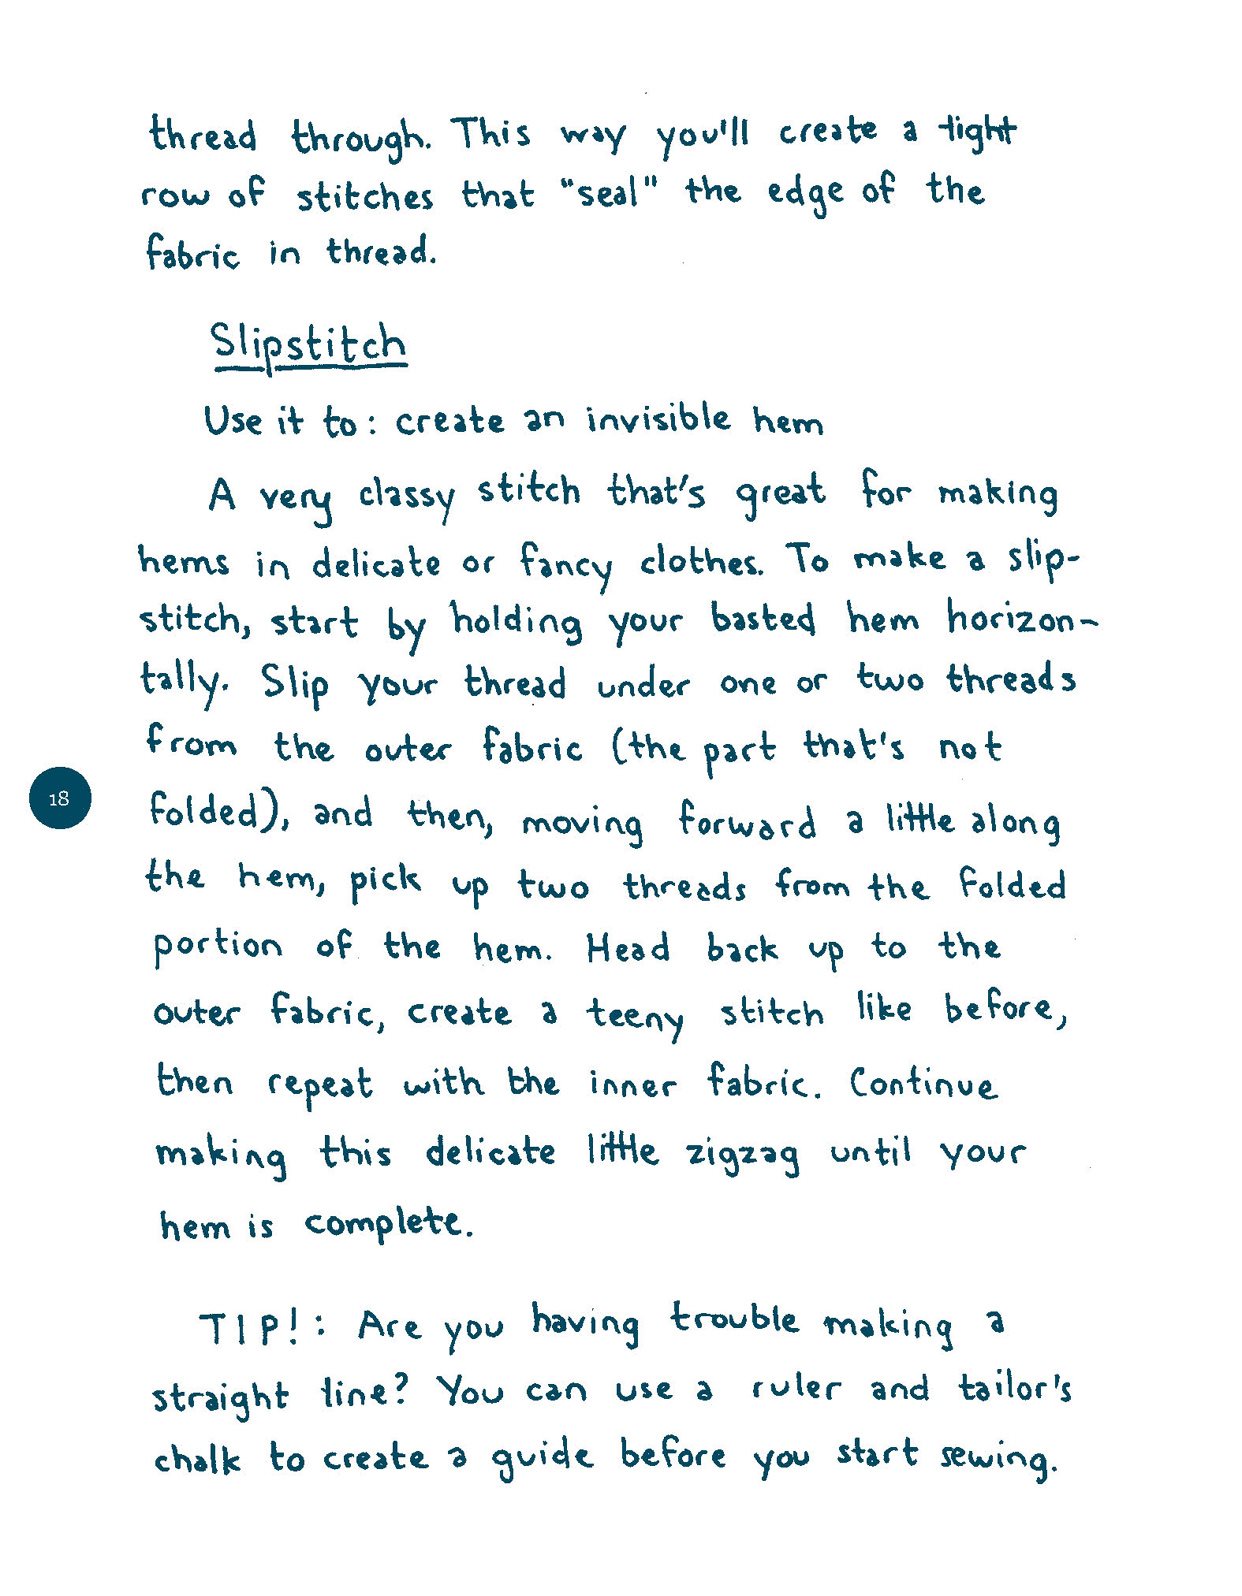 thread through. This way you'll create a tight
row of stitches that "seal" the edge of the
fabric in thread.
Slipstitch
Use it to: create an invisible hem
A very classy stitch that's great for making
hems in delicate or fancy clothes. To make a slip-
stitch, start by holding your basted hem horizon-
tally. Slip your thread under one or two threads
from the outer fabric (the part that's not
folded), and then, moving forward a little along
the hem, pick up two threads from the folded
portion of the hem. Head back up to the
outer fabric, create a teeny stitch like before,
then repeat with the inner fabric. Continue
making this delicate little zigzag until your
hem is complete.
TIP!: Are you having trouble making a
straight line? You can use a ruler and tailor's
chalk to create a guide before you start sewing.
18